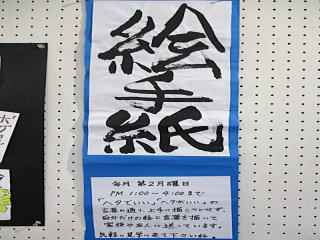 絵手紙
毎月 第2月曜日
PM 1:00~4:00まで
"ヘタでいい""ヘタがいい"の
言葉の通り、上手に描こうとせず。
自分だけの絵と言葉を描いて
家族や友人に送っています。
気軽に見学に来て下さいね。